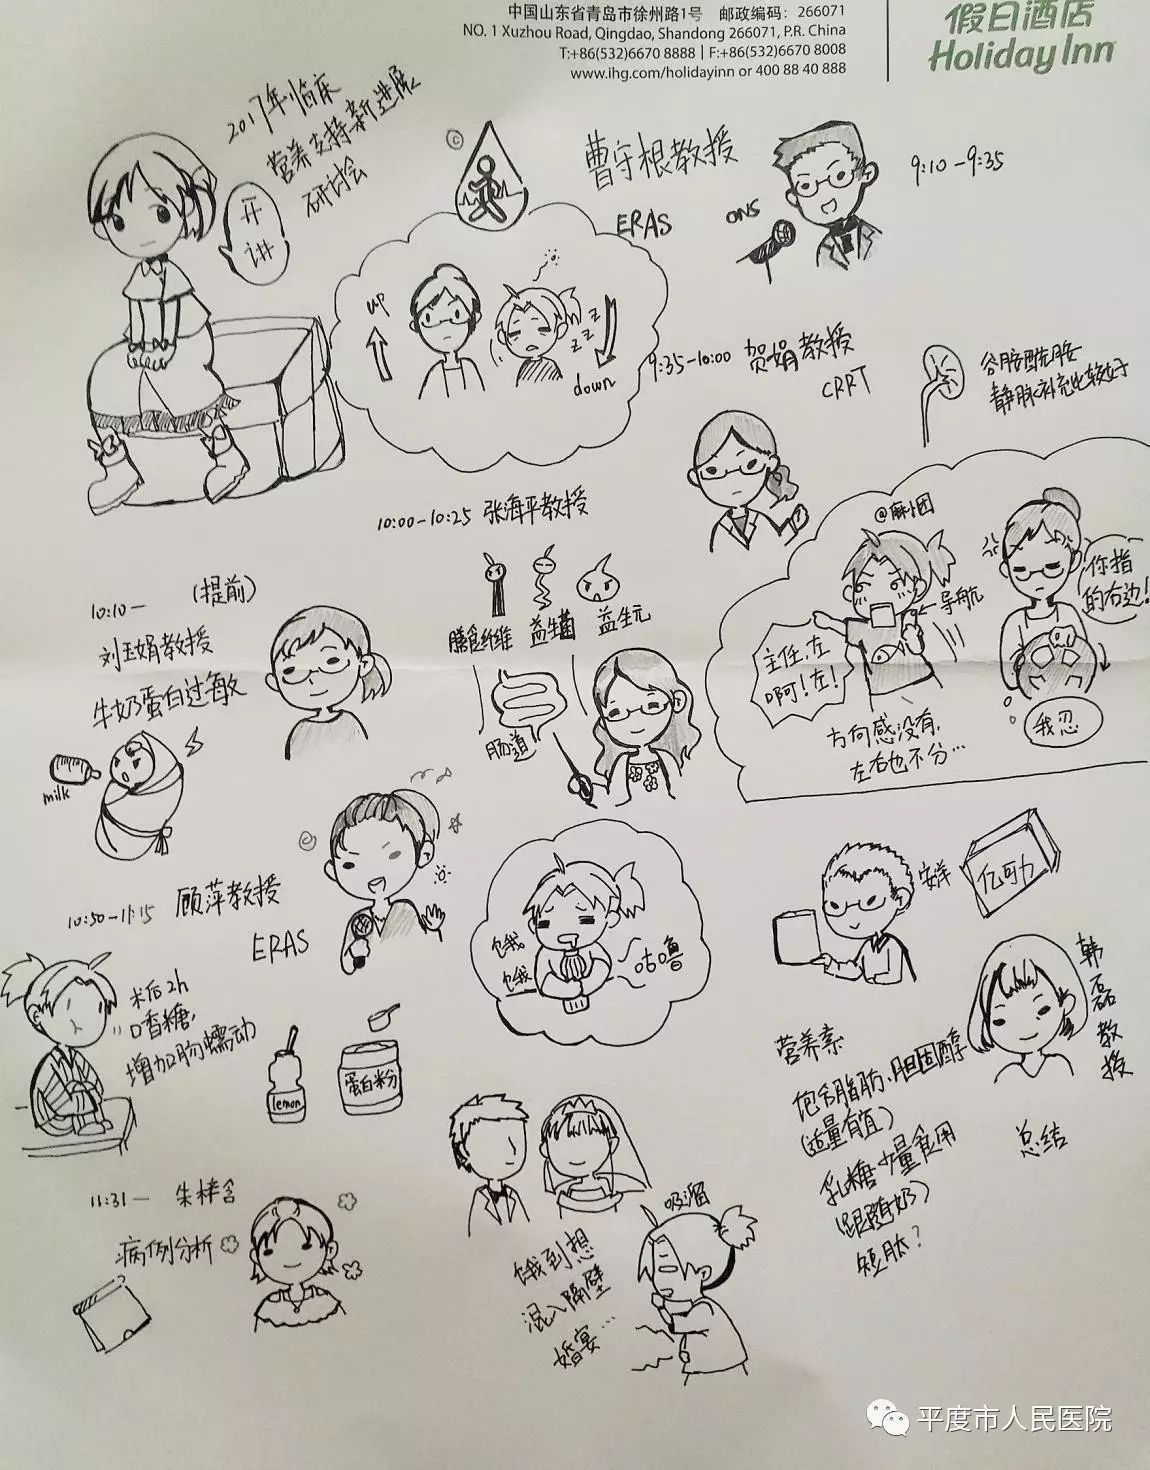 中国山东省青岛市徐州路1号 邮政编码：266071
NO. 1 Xuzhou Road, Qingdao, Shandong 266071, P.R. China
T:+86(532)6670 8888 | F:+86(532)6670 8008
www.ihg.com/holidayinn or 400 88 40 888
假日酒店
Holiday Inn
2017年临床
营养支持新进展
研讨会
开
讲
©
曹守根教授
ERAS
ONS
9:10-9:35
up
zzz
down
9:35-10:00 贺娟教授
CRRT
谷胺酰胺
静脉补充比较好
10:00-10:25 张海平教授
膳食纤维
益生菌
益生元
肠道
@麻小团
导航
主任,左
啊!左!
方向感没有,
左右也不分…
你指
的右边!
我忍
10:10- (提前)
刘玉娟教授
牛奶蛋白过敏
milk
10:50-11:15 顾萍教授
ERAS
术后2h
口香糖,
增加肠蠕动
lemon
蛋白粉
饿
饿
咕噜
安洋
亿可力
韩磊教授
总结
营养素
包含脂肪、胆固醇
(适量有宜)
乳糖少量食用
(跟随奶)
短肽?
11:31-
病例分析
吸溜
饿到想
混入隔壁
婚宴…
平度市人民医院